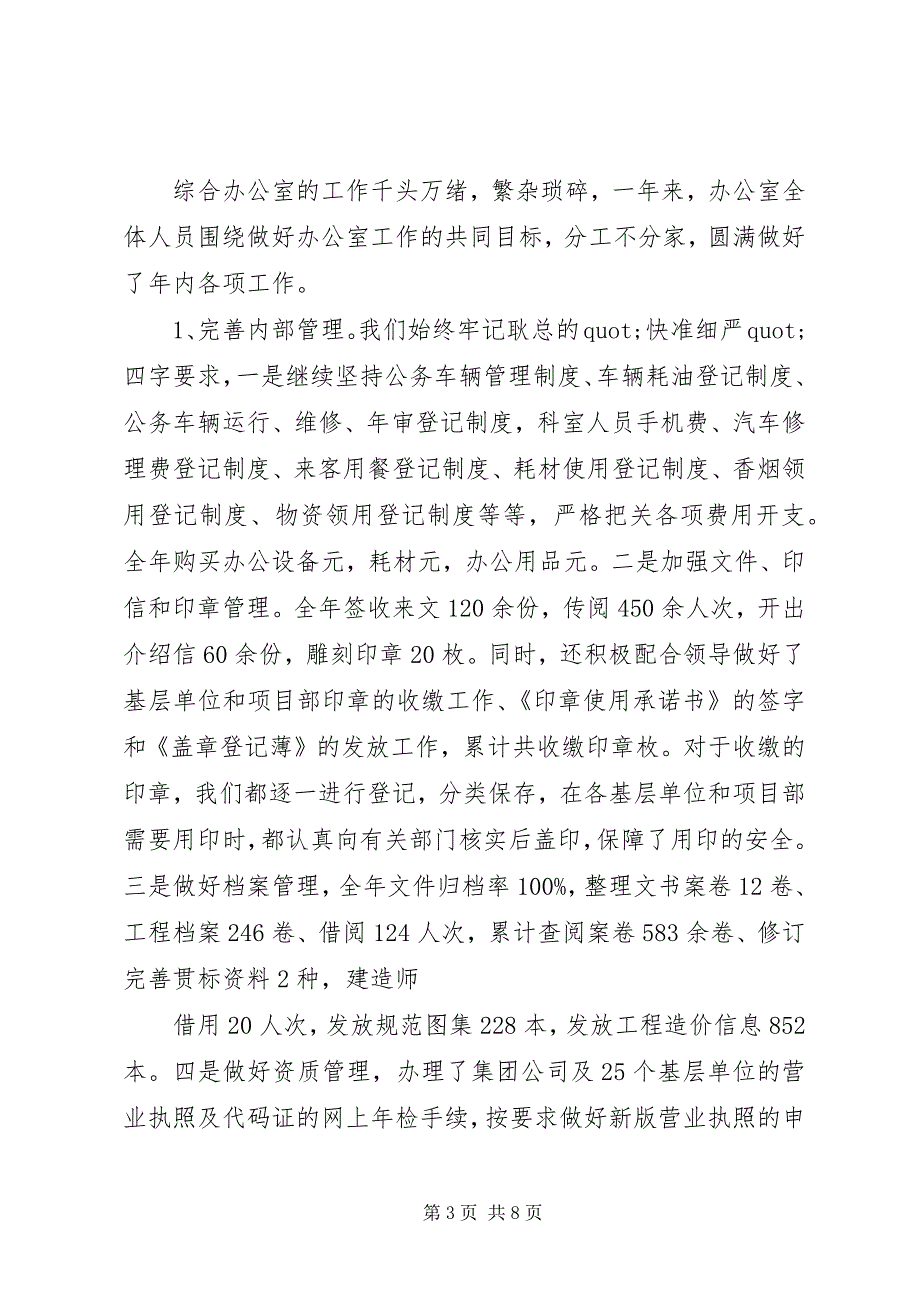 综合办公室的工作千头万绪，繁杂琐碎，一年来，办公室全
体人员围绕做好办公室工作的共同目标，分工不分家，圆满做好
了年内各项工作。
1、完善内部管理。我们始终牢记耿总的quot;快准细严quot;
四字要求，一是继续坚持公务车辆管理制度、车辆耗油登记制度、
公务车辆运行、维修、年审登记制度，科室人员手机费、汽车修
理费登记制度、来客用餐登记制度、耗材使用登记制度、香烟领
用登记制度、物资领用登记制度等等，严格把关各项费用开支。
全年购买办公设备元，耗材元，办公用品元。二是加强文件、印
信和印章管理。全年签收来文 120 余份，传阅 450 余人次，开出
介绍信 60 余份，雕刻印章 20 枚。同时，还积极配合领导做好了
基层单位和项目部印章的收缴工作、《印章使用承诺书》的签字
和《盖章登记薄》的发放工作，累计共收缴印章枚。对于收缴的
印章，我们都逐一进行登记，分类保存，在各基层单位和项目部
需要用印时，都认真向有关部门核实后盖印，保障了用印的安全。
三是做好档案管理，全年文件归档率 100%，整理文书案卷 12 卷、
工程档案 246 卷、借阅 124 人次，累计查阅案卷 583 余卷、修订
完善贯标资料 2 种，建造师
借用 20 人次，发放规范图集 228 本，发放工程造价信息 852
本。四是做好资质管理，办理了集团公司及 25 个基层单位的营
业执照及代码证的网上年检手续，按要求做好新版营业执照的申
第 3 页 共 8 页